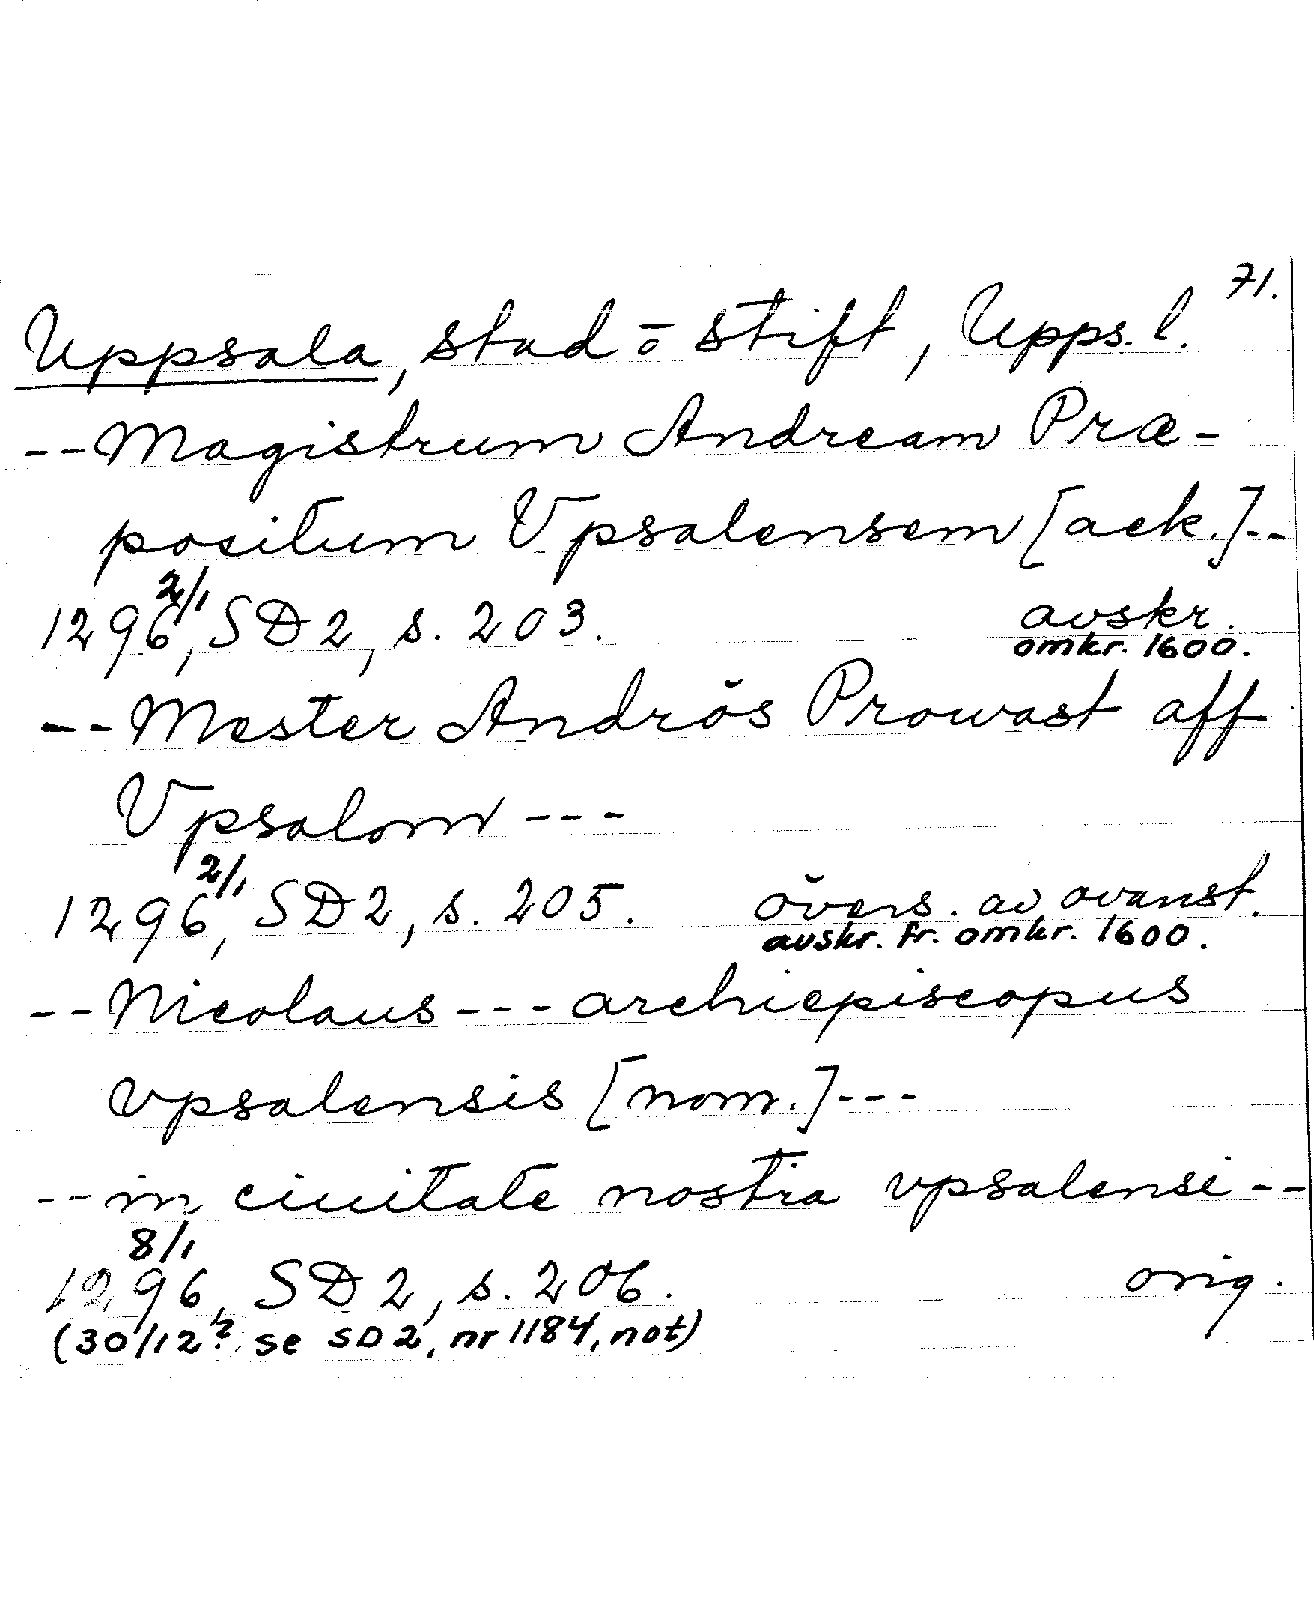 71.
Uppsala, stad o stift, Upps. l.
--Magistrum Andream Præ-
positum Vpsalensem [ack.]--
1296 2/1, SD2, s. 203. avskr.
omkr. 1600.
--Mester Andrős Prowast aff
Vpsalom ---
1296 2/1, SD2, s. 205. övers. av ovanst.
avskr. fr. omkr. 1600.
--Nicolaus --- archiepiscopus
vpsalensis [nom.]---
--in ciuitate nostra vpsalensi--
1296 8/1, SD2, s. 206. orig.
(30/12? se SD2, nr 1184, not)